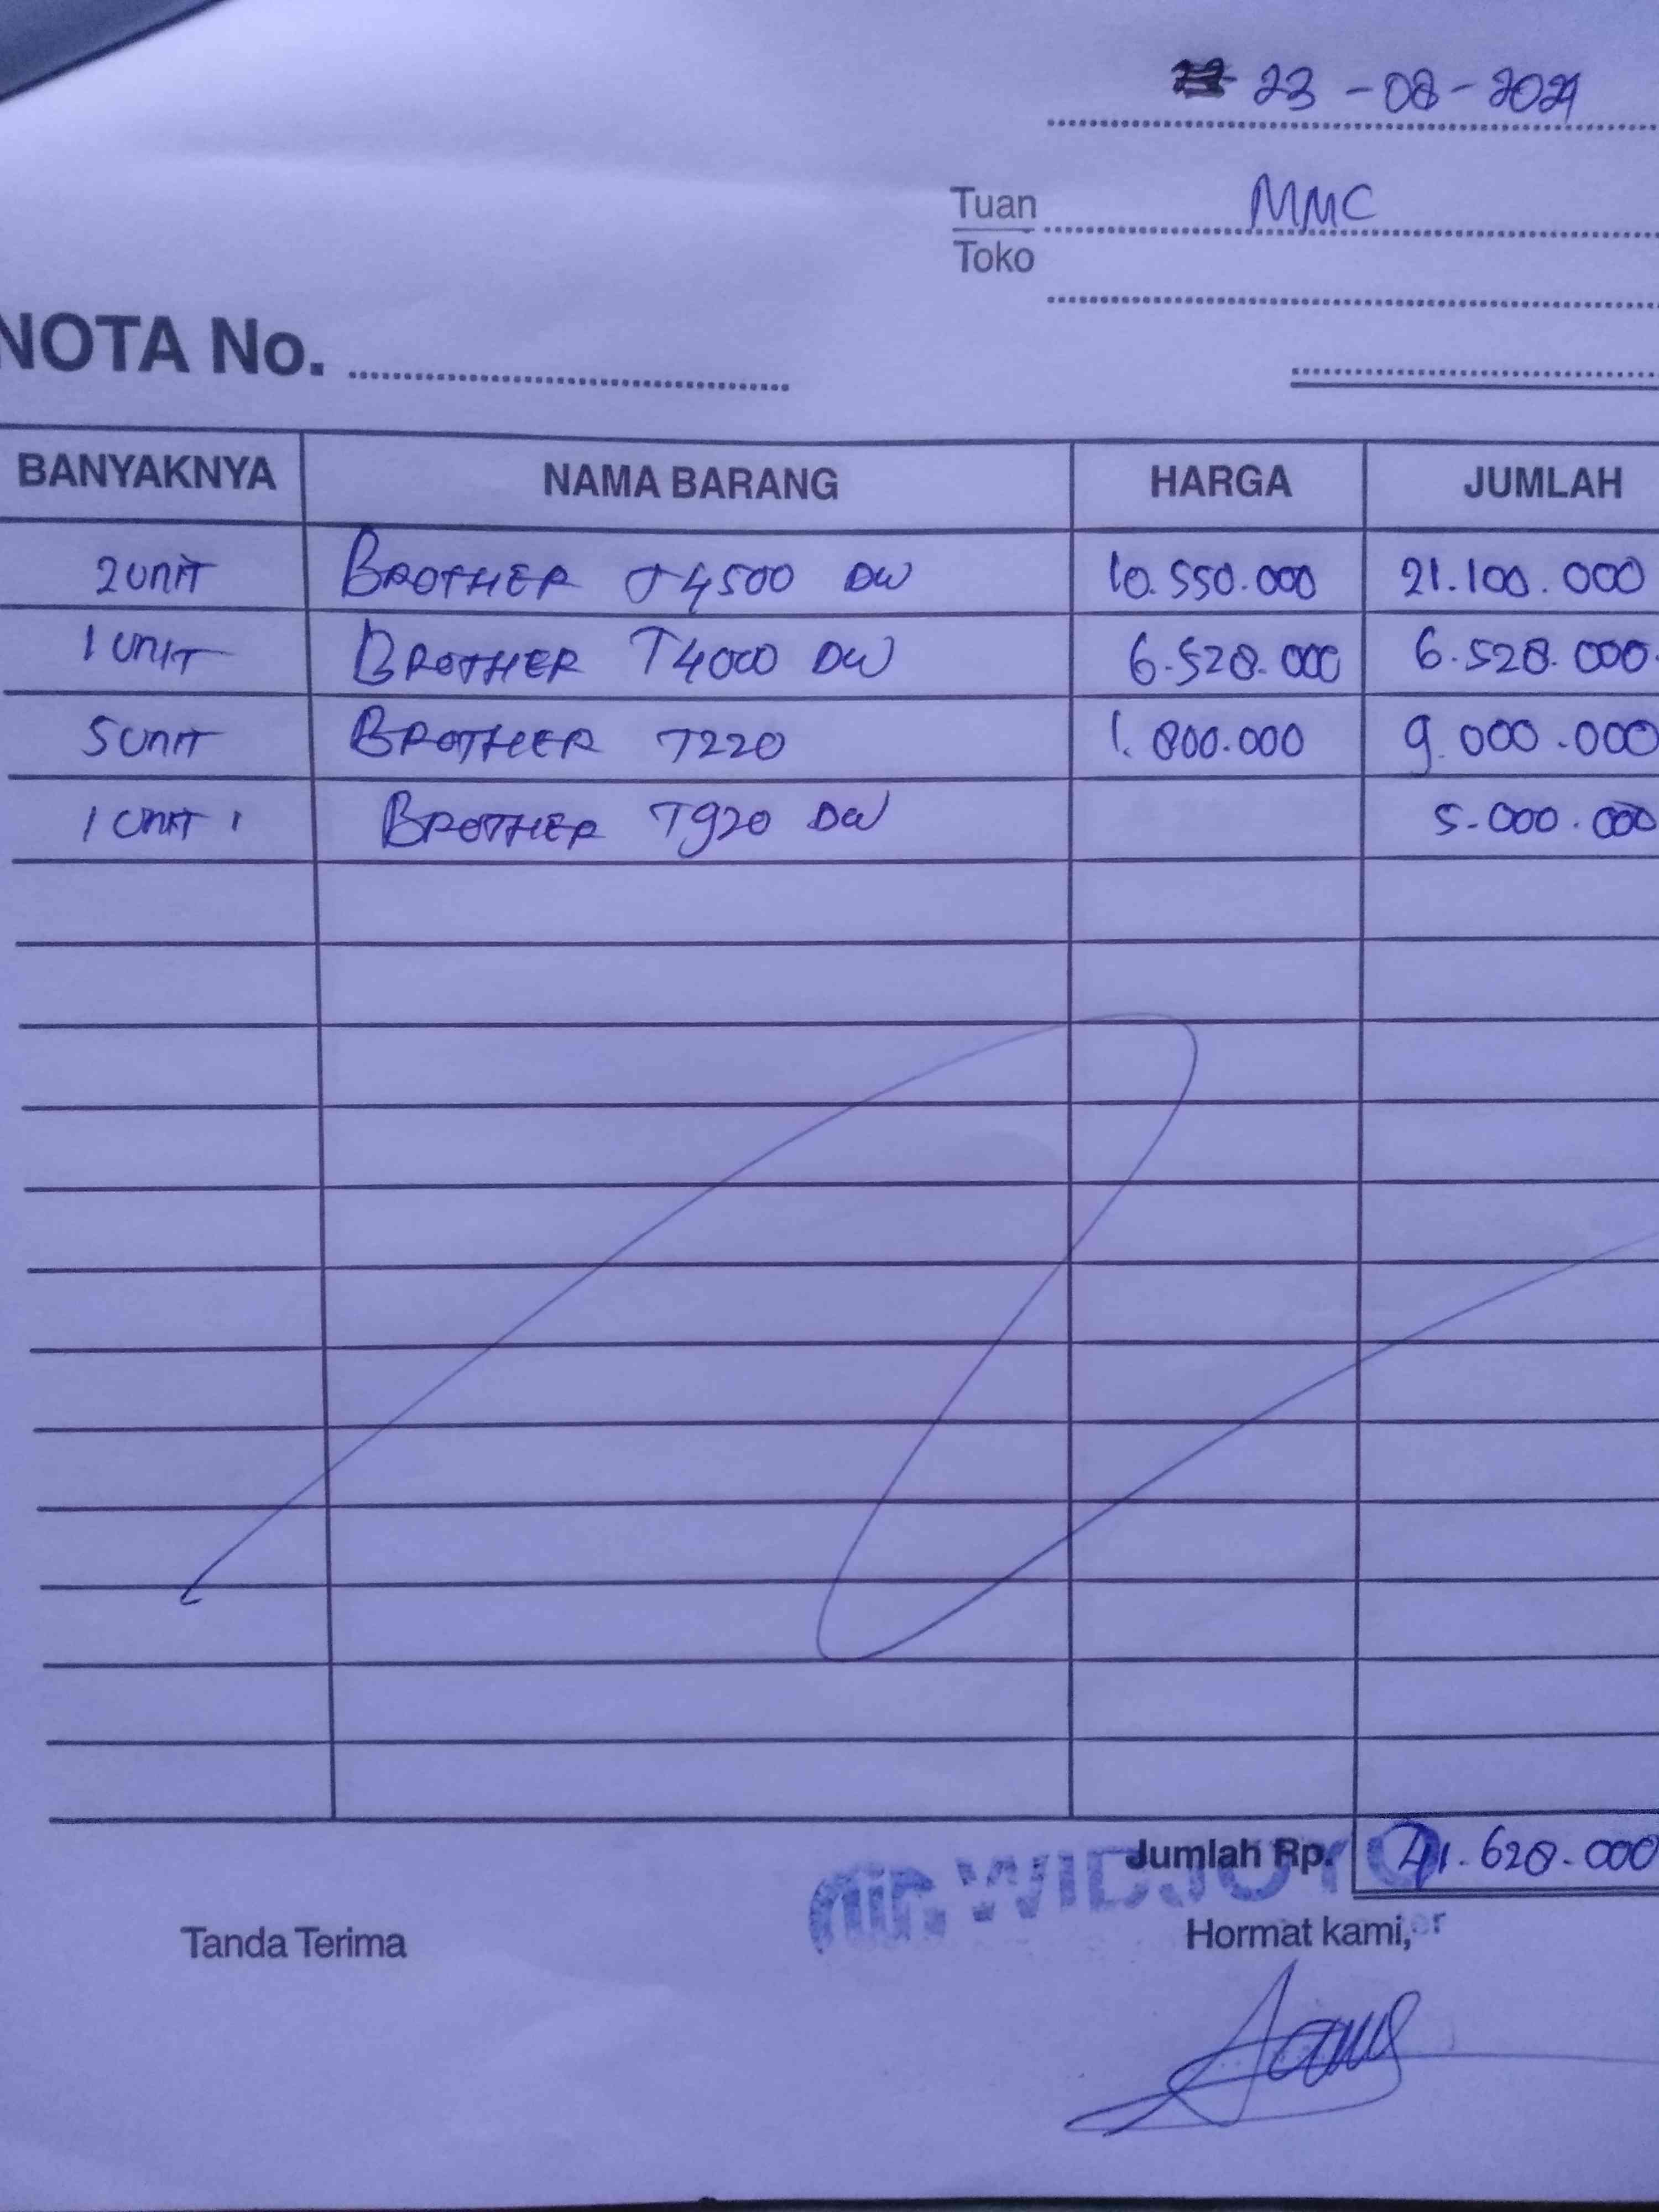 23-08-2024
Tuan MMC
Toko
NOTA No.
BANYAKNYA NAMA BARANG HARGA JUMLAH
2 UNIT BROTHER T4500 DW 10.550.000 21.100.000
1 UNIT BROTHER T4000 DW 6.528.000 6.528.000
5 UNIT BROTHER T220 1.800.000 9.000.000
1 UNIT BROTHER T920 DW 5.000.000
Jumlah Rp. 41.628.000
WIDJOYO
Tanda Terima Hormat kami,